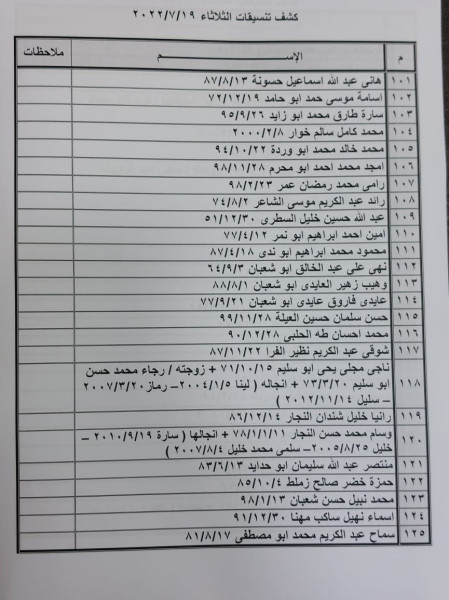 كشف تنسيقات الثلاثاء ٢٠٢٢/٧/١٩
م الإســـــم ملاحظات
١٠١ هانى عبد الله اسماعيل حسونة ٨٧/٨/١٣
١٠٢ اسامة موسى حمد ابو حامد ٧٢/١٢/١٩
١٠٣ سارة طارق محمد ابو زايد ٩٥/٩/٢٦
١٠٤ محمد كامل سالم خوار ٢٠٠٠/٢/٨
١٠٥ محمد خالد محمد ابو وردة ٩٤/١٠/٢٢
١٠٦ امجد محمد احمد ابو محرم ٩٨/١١/٢٨
١٠٧ رامى محمد رمضان عمر ٩٨/٢/٢٣
١٠٨ رائد عبد الكريم موسى الشاعر ٧٤/٨/٢
١٠٩ عبد الله حسين خليل السطرى ٥١/١٢/٣٠
١١٠ امين احمد ابراهيم ابو نمر ٧٧/٤/١٢
١١١ محمود محمد ابراهيم ابو ندى ٨٧/٤/١٨
١١٢ نهى على عبد الخالق ابو شعبان ٦٤/٩/٣
١١٣ وهيب زهير العايدى ابو شعبان ٨٨/٨/١
١١٤ عايدى فاروق عايدى ابو شعبان ٧٧/٩/٢١
١١٥ حسن سلمان حسين العيلة ٩٩/١١/٢٨
١١٦ محمد احسان طه الحلبى ٩٠/١٢/٢٨
١١٧ شوقى عبد الكريم نظير الفرا ٨٧/١١/٢٢
١١٨ ناجى مجلى يحى ابو سليم ٧١/١٠/١٥ + زوجته / رجاء محمد حسن
ابو سليم ٧٣/٣/٢٠ + انجاله ( لينا ٢٠٠٤/١/٥ – رماز ٢٠٠٧/٣/٢٠
– سليل ٢٠١٢/١١/١٤ )
١١٩ رانيا خليل شندان النجار ٨٦/١٢/١٤
١٢٠ وسام محمد حسن النجار ٧٨/١/١١ + انجالها ( سارة ٢٠١٠/٩/١٩ –
خليل ٢٠٠٥/٨/٢٥ – سلمى محمد خليل ٢٠٠٧/٨/٤ )
١٢١ منتصر عبد الله سليمان ابو حدايد ٨٣/٦/١٣
١٢٢ حمزة خضر صالح زملط ٨٥/١٠/٤
١٢٣ محمد نبيل حسن شعبان ٩٨/١/١٣
١٢٤ اسماء نهيل ساكب مهنا ٩١/١٢/٣٠
١٢٥ سماح عبد الكريم محمد ابو مصطفى ٨١/٨/١٧